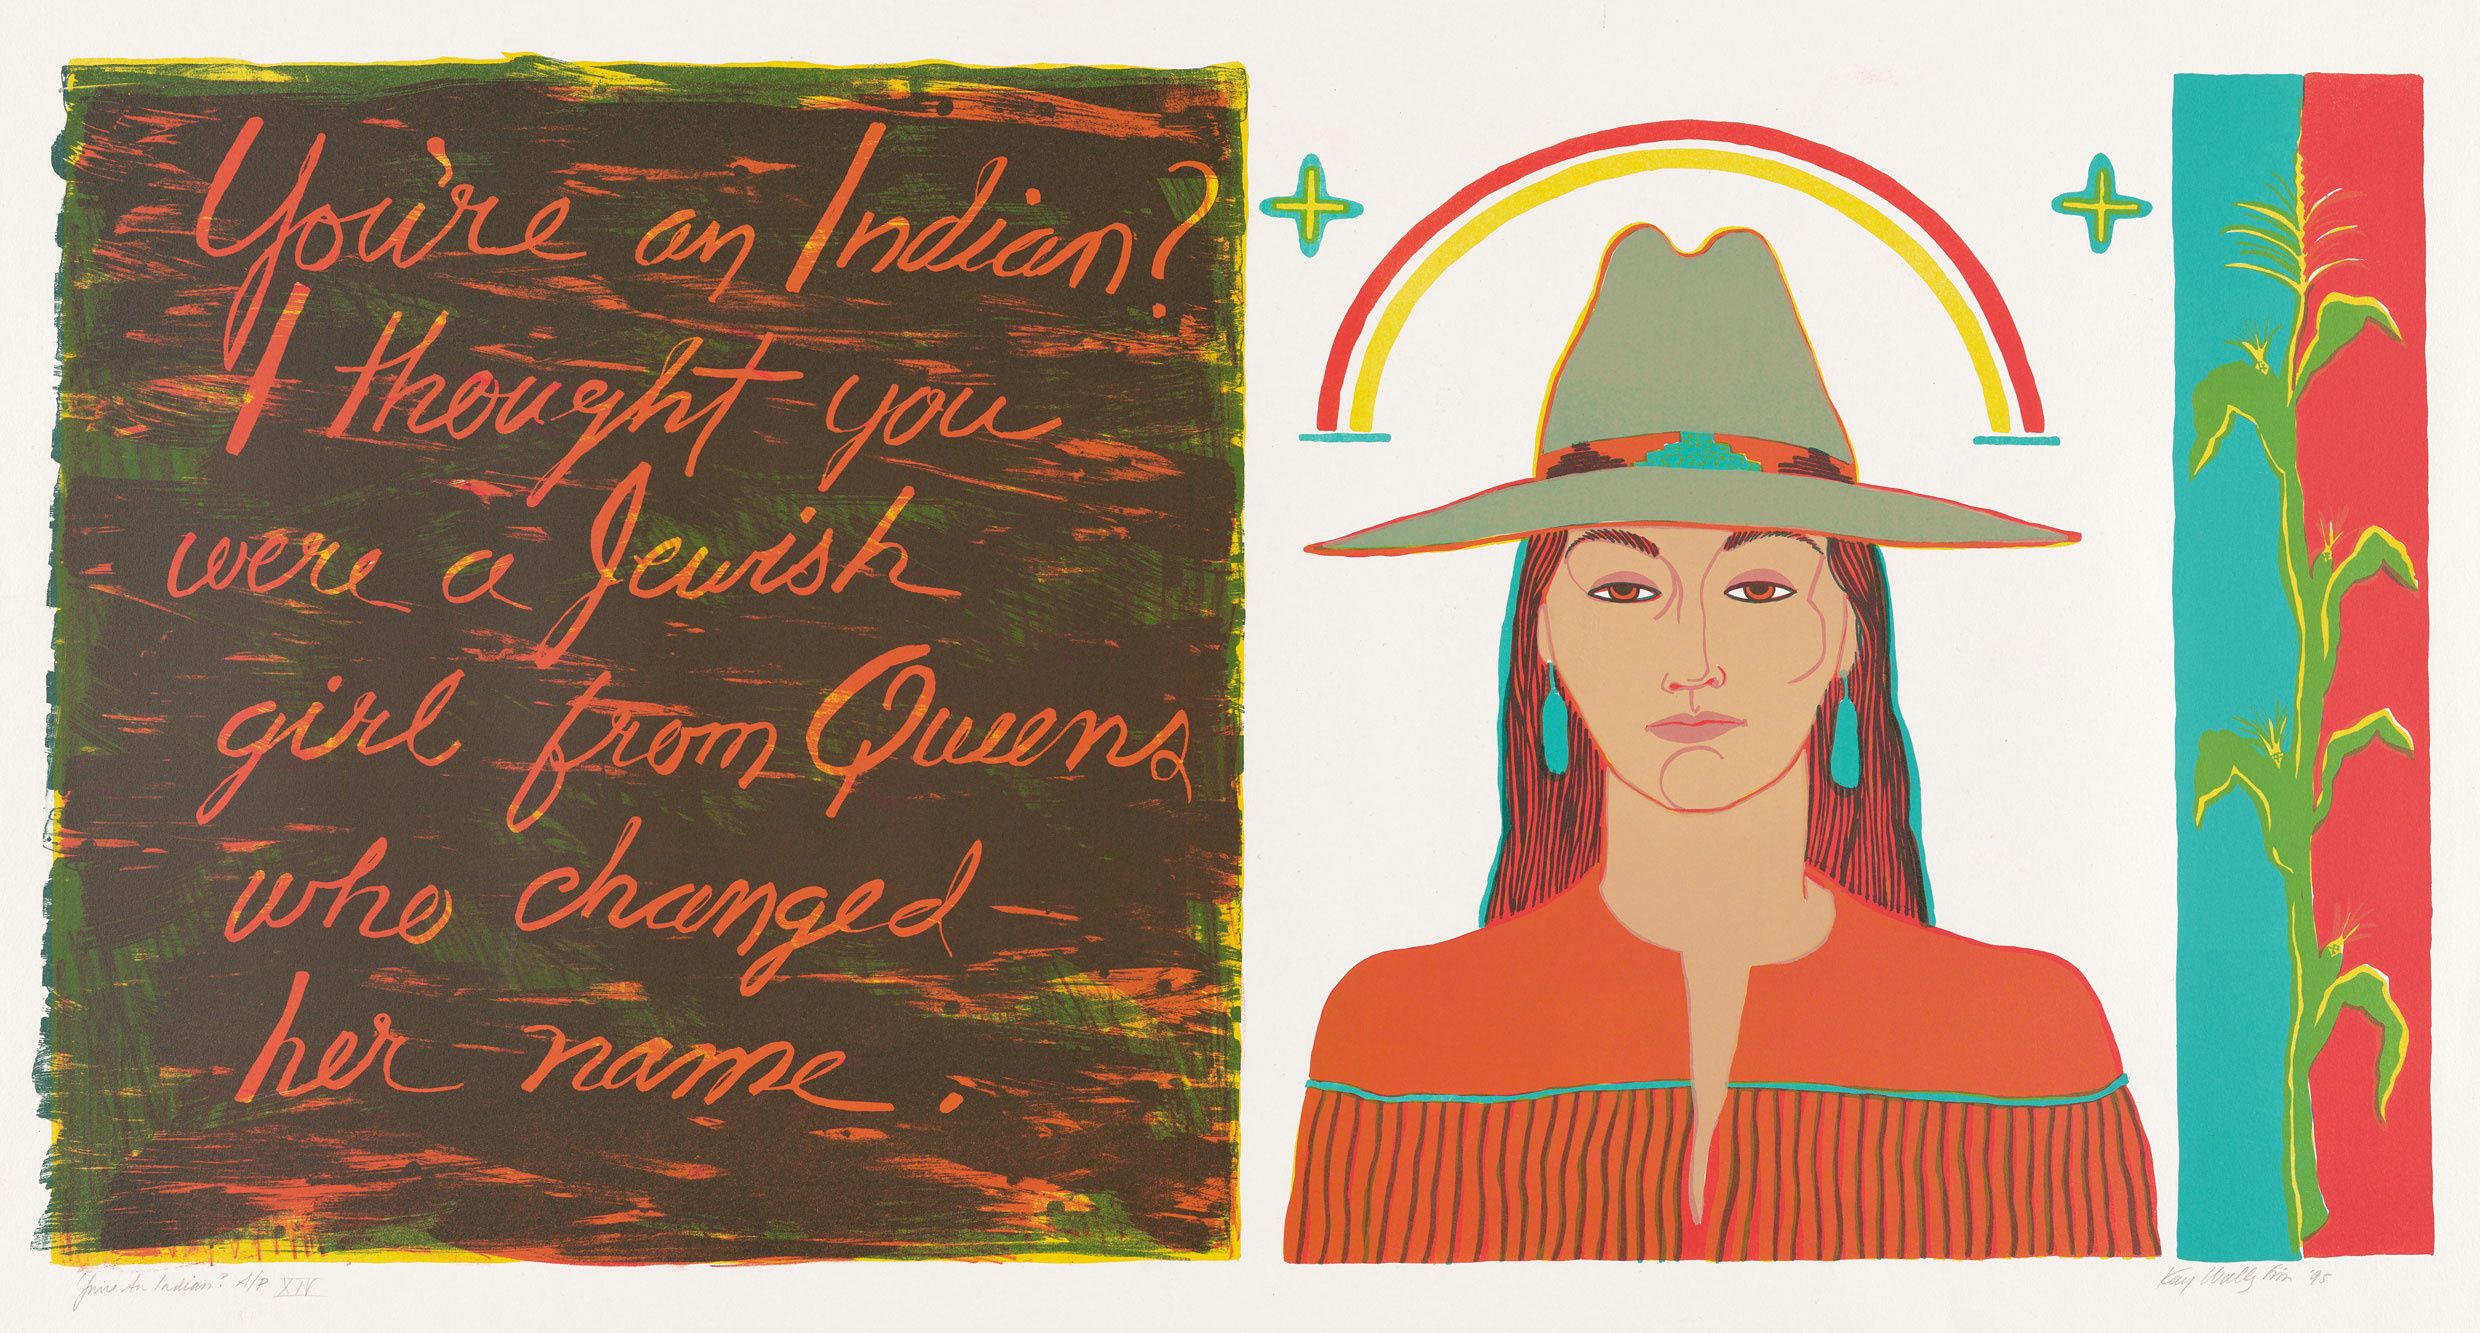 You're an Indian?
I thought you
were a Jewish
girl from Queens
who changed
her name.
"You're An Indian? A/P XIV
Kay WalkingStick '95